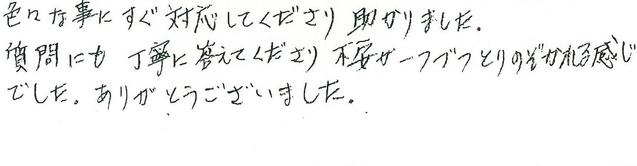 色々な事にすぐ対応してくださり 助かりました。
質問にも 丁寧に答えてくださり 不安が一つづつとりのぞかれる感じ
でした。ありがとうございました。